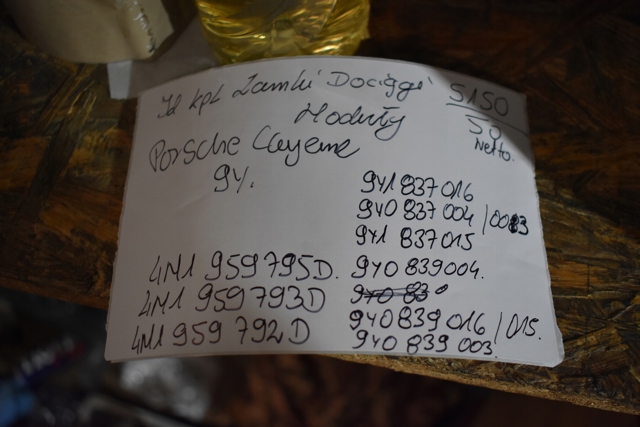 kpl Zamki Dociągi 5150
Moduły 50
Netto.
Porsche Cayenne
9Y.
9Y1 837 016
9Y0 837 004 / 003
9Y1 837 015
4M1 959 795D. 9Y0 839 004.
4M1 959 793D 9Y0 83
4M1 959 792D 9Y0 839 016 / 015.
9Y0 839 003.